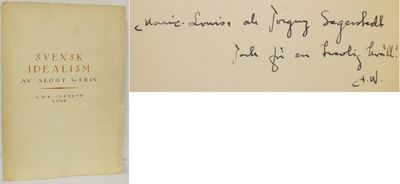 SVENSK
IDEALISM
AV ALGOT WERIN
C.W.K. GLEERUP
LUND
Marie-Louise och Torgny Segerstedt
Tack för en trevlig kväll!
A.W.